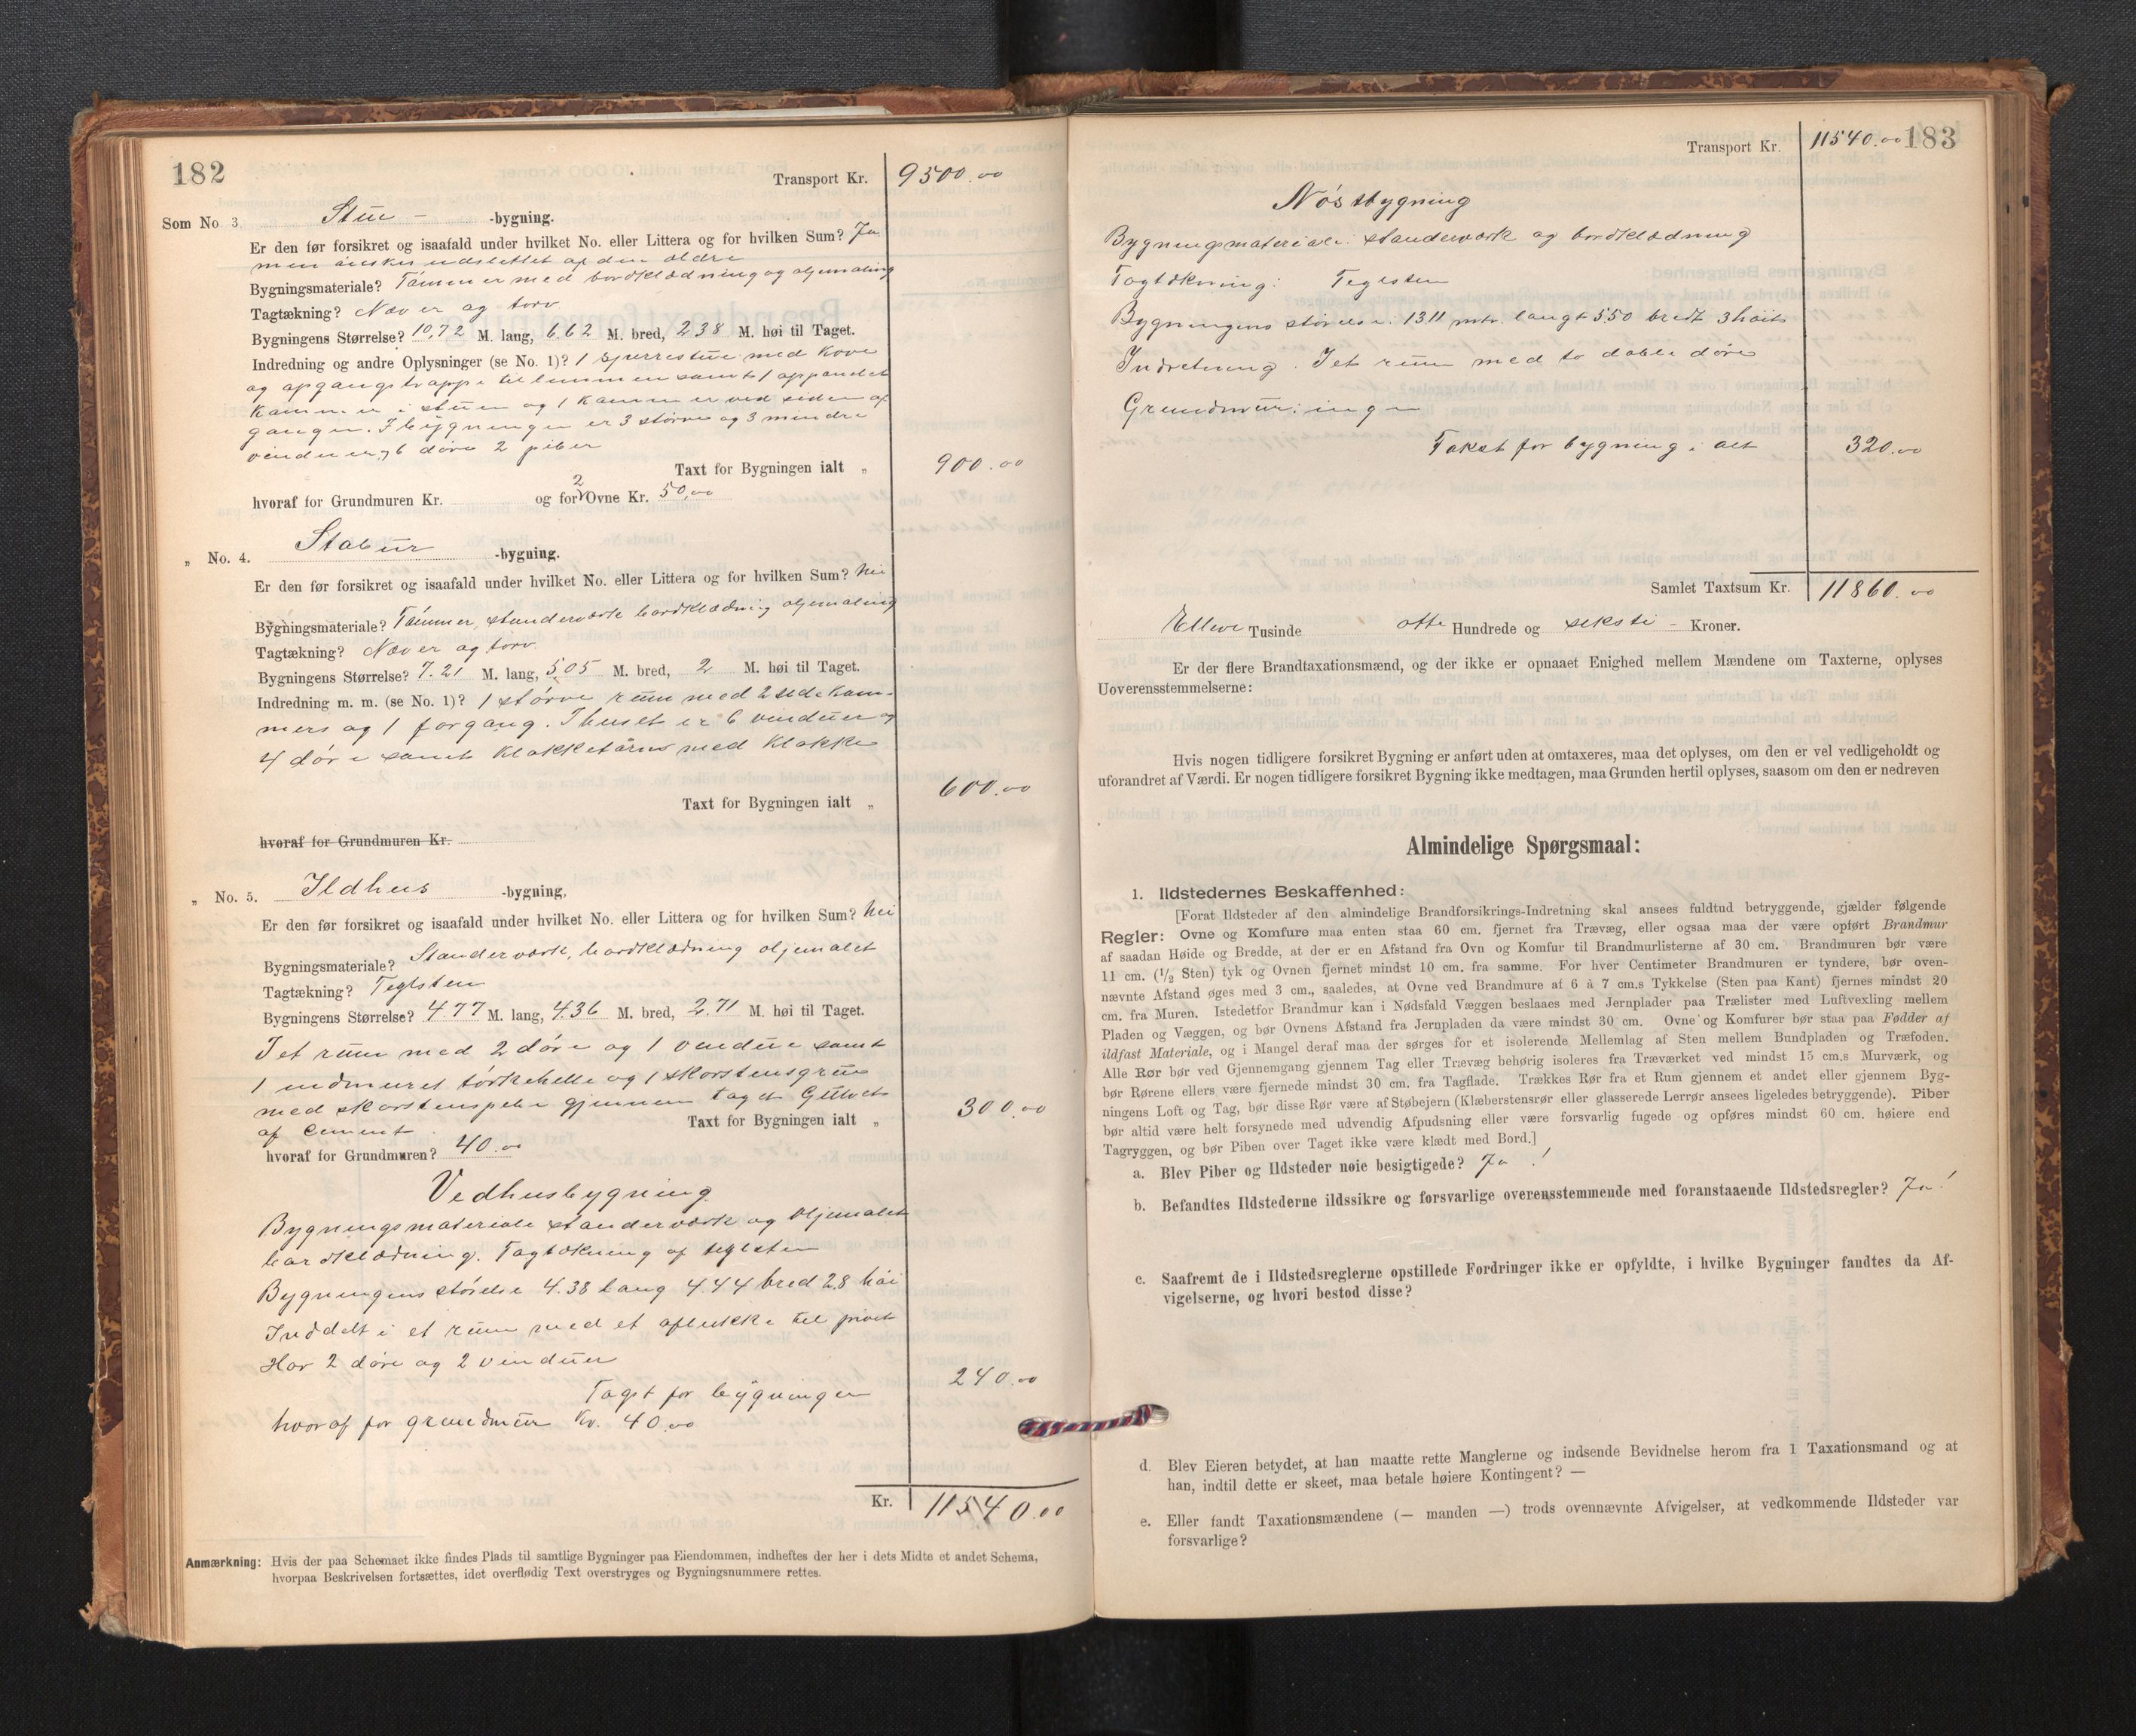 182
Transport Kr. 9500.00
Som No 3. Stue- -bygning.
Er den før forsikret og isaafald under hvilket No. eller Littera og for hvilken Sum? Ja
men önskes udslettet af den ældre
Bygningsmateriale? Tömmer med bordklædning og oljemaling
Tagtækning? Næver og torv
Bygningens Størrelse? 10,72 M. lang, 6.62 M. bred, 2.38 M. høi til Taget.
Indredning og andre Oplysninger (se No. 1)? 1 sperrestue med Kove
og opgangstrappe til lemmen samt 1 oppanelet
Kammer i stuen og 1 Kammer ved siden af
gangen. I bygningen er 3 større og 3 mindre
vinduer, 6 døre 2 piber
Taxt for Bygningen ialt „ 900.00
hvoraf for Grundmuren Kr. og for 2 Ovne Kr. 50,00
„ No. 4. Stabur -bygning.
Er den før forsikret og isaafald under hvilket No. eller Littera og for hvilken Sum? Nei
Bygningsmateriale? Tömmer, standerværk bordklædning oljemaling
Tagtækning? Næver og torv
Bygningens Størrelse? 7.21 M. lang, 5.05 M. bred, 2 M. høi til Taget.
Indredning m. m. (se No. 1)? 1 större rum med 2 sidekam-
mers og 1 forgang. I huset er 6 vinduer og
4 døre samt Klokketårn med Klokke
Taxt for Bygningen ialt „ 600.00
hvoraf for Grundmuren Kr.
„ No. 5. Ildhus -bygning,
Er den før forsikret og isaafald under hvilket No. eller Littera og for hvilken Sum? Nei
Bygningsmateriale? Standerværk, bordklædning oljemalet
Tagtækning? Teglsten
Bygningens Størrelse? 4.77 M. lang, 4.36 M. bred, 2.71 M. høi til Taget.
I et rum med 2 døre og 1 vindue samt
1 indmuret törkehelle og 1 skorstensgrue
med skorstenspibe gjennem taget Gulvet
af Cement
Taxt for Bygningen ialt „ 300.00
hvoraf for Grundmuren? 40.00
Vedhusbygning
Bygningsmateriale standerværk og Oljemalet
bordklædning. Tagtækning af teglsten
Bygningens störelse 4.38 lang 4.44 bred 2.8 höi
Inddelt i et rum med et aflukke til privet
Har 2 døre og 2 vinduer
Tagst for bygningen 240.00
hvoraf for grundmur Kr. 40.00
Kr. 11540.00
Anmærkning: Hvis der paa Schemaet ikke findes Plads til samtlige Bygninger paa Eiendommen, indheftes der her i dets Midte et andet Schema,
hvorpaa Beskrivelsen fortsættes, idet overflødig Text overstryges og Bygningsnummere rettes.
183
Transport Kr. 11540.00
Nöstbygning
Bygningsmateriale: standerværk og bordklædning
Tagtækning: Teglsten
Bygningens störelse: 13.11 mtr. langt 5.50 bredt 3 höit
Indretning. I et rum med to doble döre
Grundmur: ingen
Takst for bygning i alt 320.00
Samlet Taxtsum Kr. 11860.00
Elleve Tusinde otte Hundrede og seksti - Kroner.
Er der flere Brandtaxationsmænd, og der ikke er opnaaet Enighed mellem Mændene om Taxterne, oplyses
Uoverensstemmelserne:
Hvis nogen tidligere forsikret Bygning er anført uden at omtaxeres, maa det oplyses, om den er vel vedligeholdt og
uforandret af Værdi. Er nogen tidligere forsikret Bygning ikke medtagen, maa Grunden hertil oplyses, saasom om den er nedreven
Almindelige Spørgsmaal:
1. Ildstedernes Beskaffenhed:
[Forat Ildsteder af den almindelige Brandforsikrings-Indretning skal ansees fuldtud betryggende, gjælder følgende
Regler: Ovne og Komfure maa enten staa 60 cm. fjernet fra Trævæg, eller ogsaa maa der være opført Brandmur
af saadan Høide og Bredde, at der er en Afstand fra Ovn og Komfur til Brandmurlisterne af 30 cm. Brandmuren bør være
11 cm. (1/2 Sten) tyk og Ovnen fjernet mindst 10 cm. fra samme. For hver Centimeter Brandmuren er tyndere, bør oven-
nævnte Afstand øges med 3 cm., saaledes, at Ovne ved Brandmure af 6 à 7 cm.s Tykkelse (Sten paa Kant) fjernes mindst 20
cm. fra Muren. Istedetfor Brandmur kan i Nødsfald Væggen beslaaes med Jernplader paa Trælister med Luftvexling mellem
Pladen og Væggen, og bør Ovnens Afstand fra Jernpladen da være mindst 30 cm. Ovne og Komfurer bør staa paa Fødder af
ildfast Materiale, og i Mangel deraf maa der sørges for et isolerende Mellemlag af Sten mellem Bundpladen og Træfoden.
Alle Rør bør ved Gjennemgang gjennem Tag eller Trævæg behørig isoleres fra Træværket ved mindst 15 cm.s Murværk, og
bør Rørene ellers være fjernede mindst 30 cm. fra Tagflade. Trækkes Rør fra et Rum gjennem et andet eller gjennem Byg-
ningens Loft og Tag, bør disse Rør være af Støbejern (Klæberstensrør eller glasserede Lerrør ansees ligeledes betryggende). Piber
bør altid være helt forsynede med udvendig Afpudsning eller være forsvarlig fugede og opføres mindst 60 cm. høiere end
Tagryggen, og bør Piben over Taget ikke være klædt med Bord.]
a. Blev Piber og Ildsteder nøie besigtigede? Ja!
b. Befandtes Ildstederne ildssikre og forsvarlige overensstemmende med foranstaaende Ildstedsregler? Ja!
c. Saafremt de i Ildstedsreglerne opstillede Fordringer ikke er opfyldte, i hvilke Bygninger fandtes da Af-
vigelserne, og hvori bestod disse?
d. Blev Eieren betydet, at han maatte rette Manglerne og indsende Bevidnelse herom fra 1 Taxationsmand og at
han, indtil dette er skeet, maa betale høiere Kontingent? —
e. Eller fandt Taxationsmændene (— manden —) trods ovennævnte Afvigelser, at vedkommende Ildsteder var
forsvarlige?